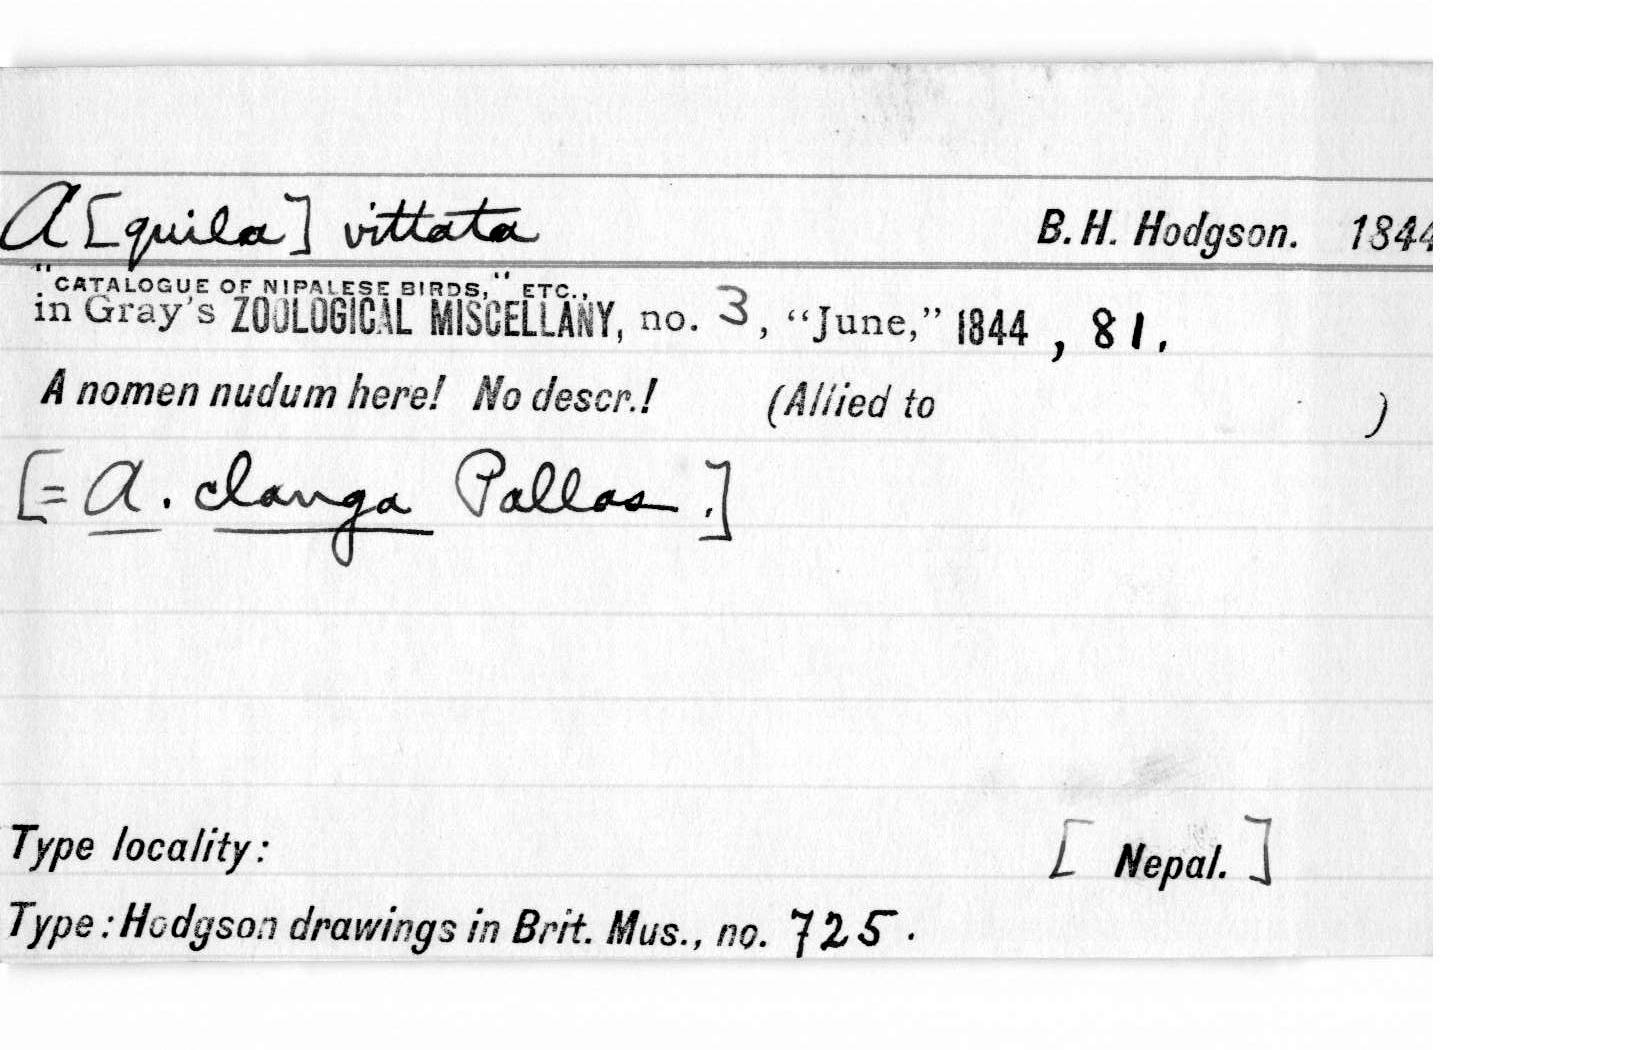 A[quila] vittata B. H. Hodgson. 1844
"CATALOGUE OF NIPALESE BIRDS," ETC.,
in Gray's ZOOLOGICAL MISCELLANY, no. 3, "June," 1844, 81.
A nomen nudum here! No descr.! (Allied to )
[= A. clanga Pallas.]
Type locality: [Nepal.]
Type: Hodgson drawings in Brit. Mus., no. 725.